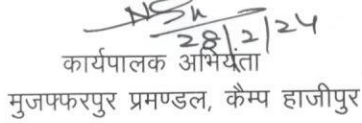 28/2/24
कार्यपालक अभियंता
मुजफ्फरपुर प्रमण्डल, कैम्प हाजीपुर